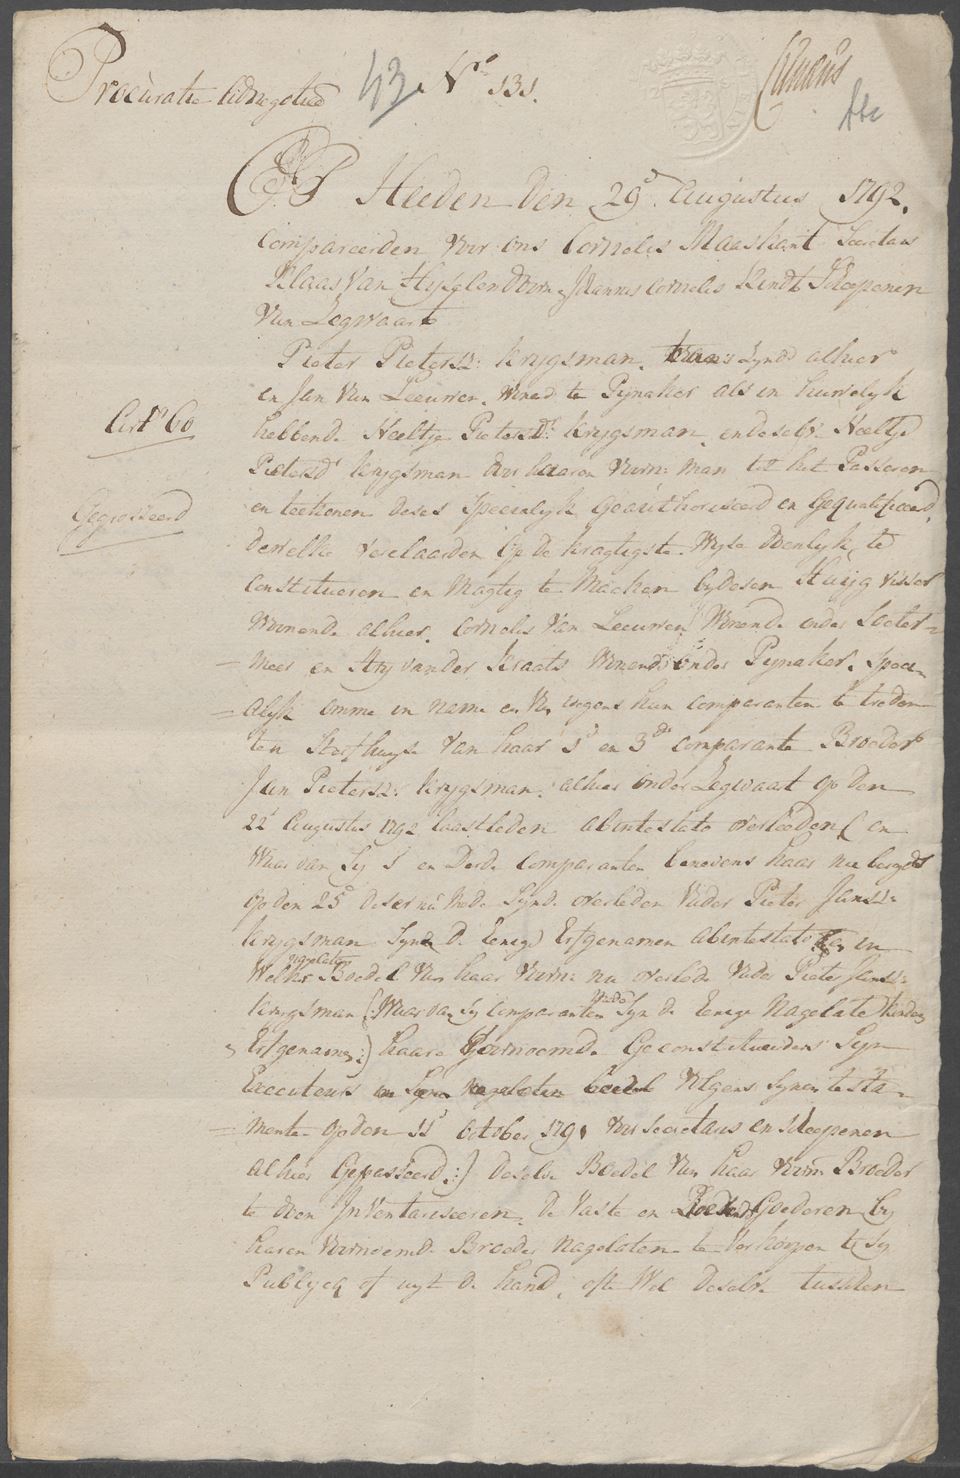 Procuratie ad negotia 43. Nro 131.
Heeden den 29e Augustus 1792.
Compareerden voor ons Cornelis Maaskant Secretaris
Klaas van Hyselendoorn Johannes Cornelis Kindt Scheepenen
van Zegwaart
Pieter Pietersz: Krijgsman, alhier
en Jan van Leeuwen, Wonend te Pijnaker als in huwelijk
Cert: 60
hebbende Neeltje Pietersdr: Krijgsman, en deselve Neeltje
Pietersdr Krijgsman door haaren voorn: man tot het Passeeren
Gegrosseerd
en teekenen deses speciaalijk Geauthoriseerd en Gequalificeerd,
dewelke verclaarden op de kragtigste Wijse doenlijk, te
Constitueren en Magtig te Maken bij desen Huijg Visser
Wonende alhier, Cornelis van Leeuwen Wonende onder Soeter-
meer en Arij van der Kraats Wonende onder Pijnaker. speci-
alijk omme in name en van wegens hun comparanten te treden
ten Sterfhuyse van haar 1e en 3de comparante Broeder
Jan Pietersz: Krijgsman, alhier onder Zegwaart op den
22e Augustus 1792 laastleden abintestato overleeden (en
Waar van sij 1e en Derde Comparanten benevens haar nu
op den 25e deser maande Zijnde overleden Vader Pieter Jansz:
Krijgsman Zijnde de Eenige Erfgenamen abintestato in
nagelaten
Welke Boedel van haar voorn: nu overlede Vader Pieter Jansz:
mede
Krijgsman (:Waar van sij Comparanten Zyn de Eenige Nagelate Kinderen
Erfgenamen:) haare voornoemde Geconstitueerdens Zijn
Executeurs in Zyn nagelaten boedel Volgens Synen testa-
mente op den 11e October 1791 voor Secretaris en Scheepenen
alhier Gepasseerd:) deselve Boedel van haar voorn: Broeder
te doen Inventariseeren, de Vaste en Goederen by
haren voornoemde Broeder Nagelaten te Verkoopen t sy
Publycq of uyt de hand, ofte Wel deselve tusschen